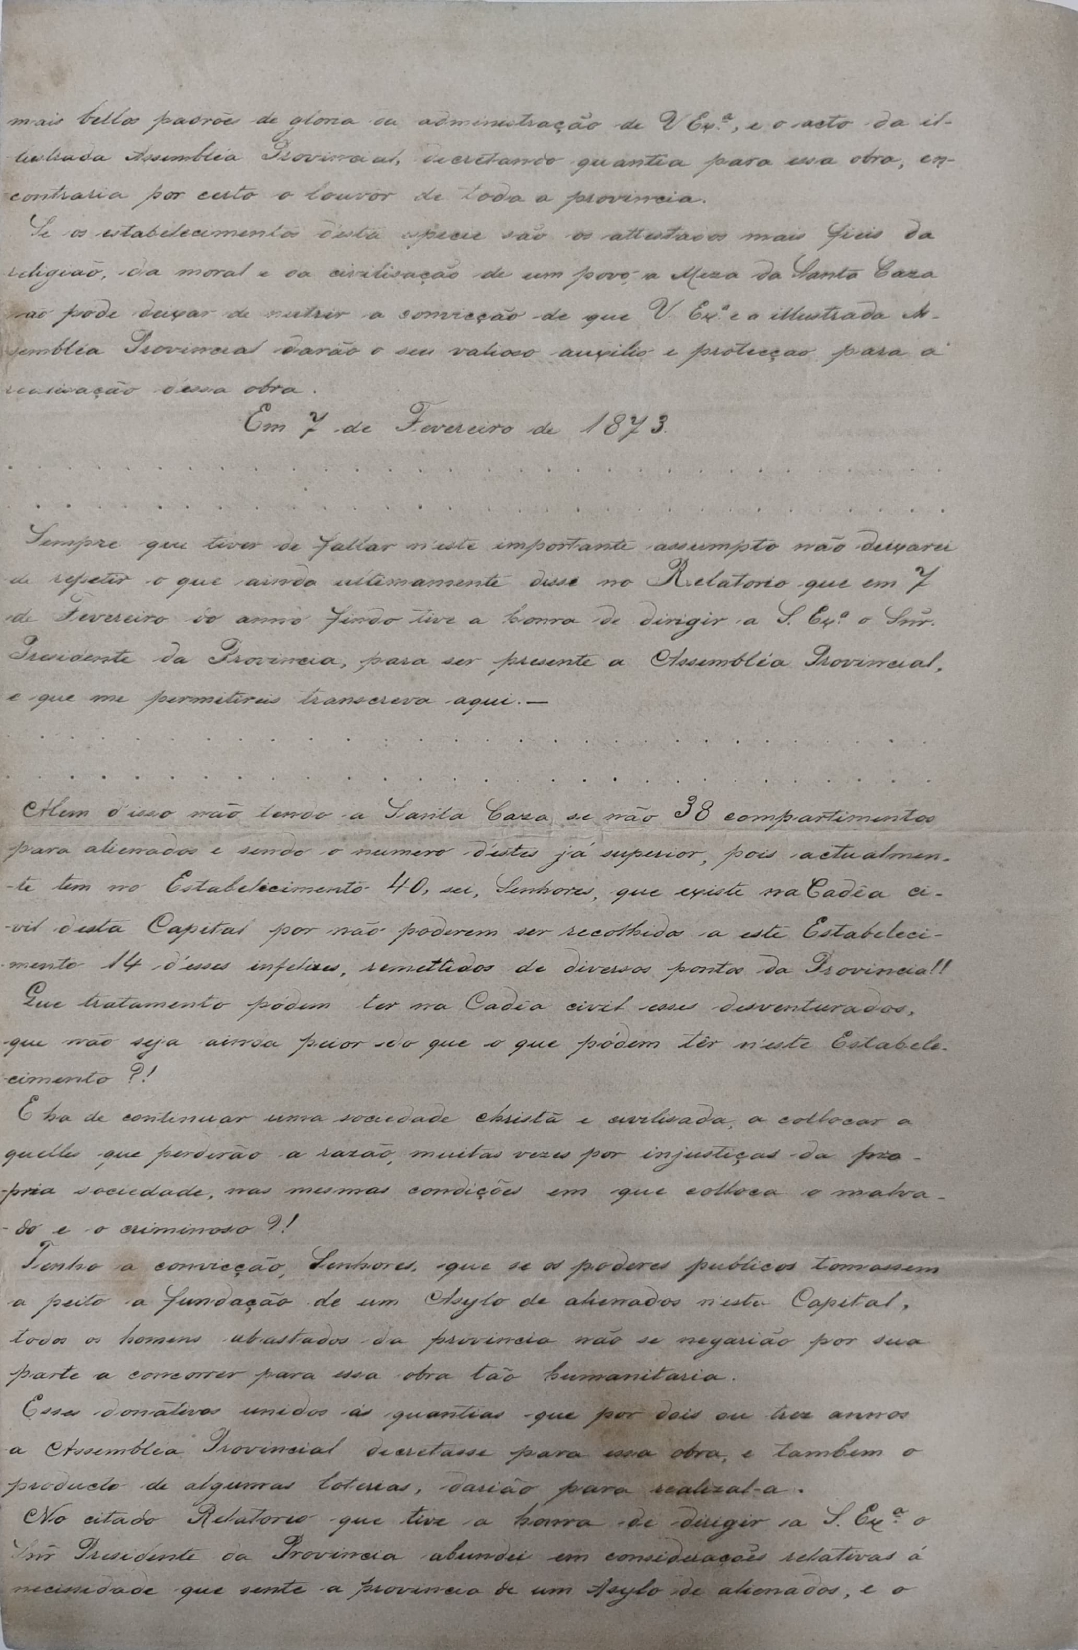 mais bellos padrões de gloria da administração de V Exª, e o acto da il-
lustrada Assembléa Provincial, decretando quantia para essa obra, en-
contraria por certo o louvor de toda a provincia.
Se os estabelecimentos desta especie são os attestados mais fieis da
religião, da moral e da civilisação de um povo, a Meza da Santa Caza
não póde deixar de nutrir a convicção de que V. Exª e a illustrada As-
sembléa Provincial darão o seu valioso auxilio e protecção para a
realisação dessa obra.
Em 7 de Fevereiro de 1873.
. . . . . . . . . . . . . . . . . . . . . . . . . .
. . . . . . . . . . . . . . . . . . . . . . . . . .
Sempre que tiver de fallar n'este importante assumpto não deixarei
de repetir o que ainda ultimamente disse no Relatorio que em 7
de Fevereiro do anno findo tive a honra de dirigir a S. Exª o Snr.
Presidente da Provincia, para ser presente a Assembléa Provincial,
e que me permitireis transcreva aqui.—
. . . . . . . . . . . . . . . . . . . . . . . . . .
. . . . . . . . . . . . . . . . . . . . . . . . . .
Alem d'isso não tendo a Santa Caza se não 38 compartimentos
para alienados e sendo o numero d'estes já superior, pois actualmen-
-te tem no Estabelecimento 40, sei, Senhores, que existe na Cadêa ci-
-vil d'esta Capital por não poderem ser recolhidos a este Estabeleci-
-mento 14 d'esses infelizes, remettidos de diversos pontos da Provincia!!
Que tratamento podem ter na Cadêa civil esses desventurados,
que não seja ainda peior do que o que pódem têr n'este Estabele-
-cimento ?!
E ha de continuar uma sociedade christã e civilisada, a collocar a
quelles que perderão a razão, muitas vezes por injustiças da pro-
-pria sociedade, nas mesmas condições em que colloca o malva-
-do e o criminoso ?!
Tenho a convicção, Senhores, que se os poderes publicos tomassem
a peito a fundação de um Asylo de alienados n'esta Capital,
todos os homens abastados da provincia não se negarião por sua
parte a concorrer para essa obra tão humanitaria.
Esses donativos unidos ás quantias que por dois ou trez annos
a Assembléa Provincial decretasse para essa obra, e tambem o
producto de algumas loterias, darião para realizal-a.
No citado Relatorio que tive a honra de dirigir a S. Exª o
Snr Presidente da Provincia abundei em considerações relativas á
necessidade que sente a provincia de um Asylo de alienados, e o